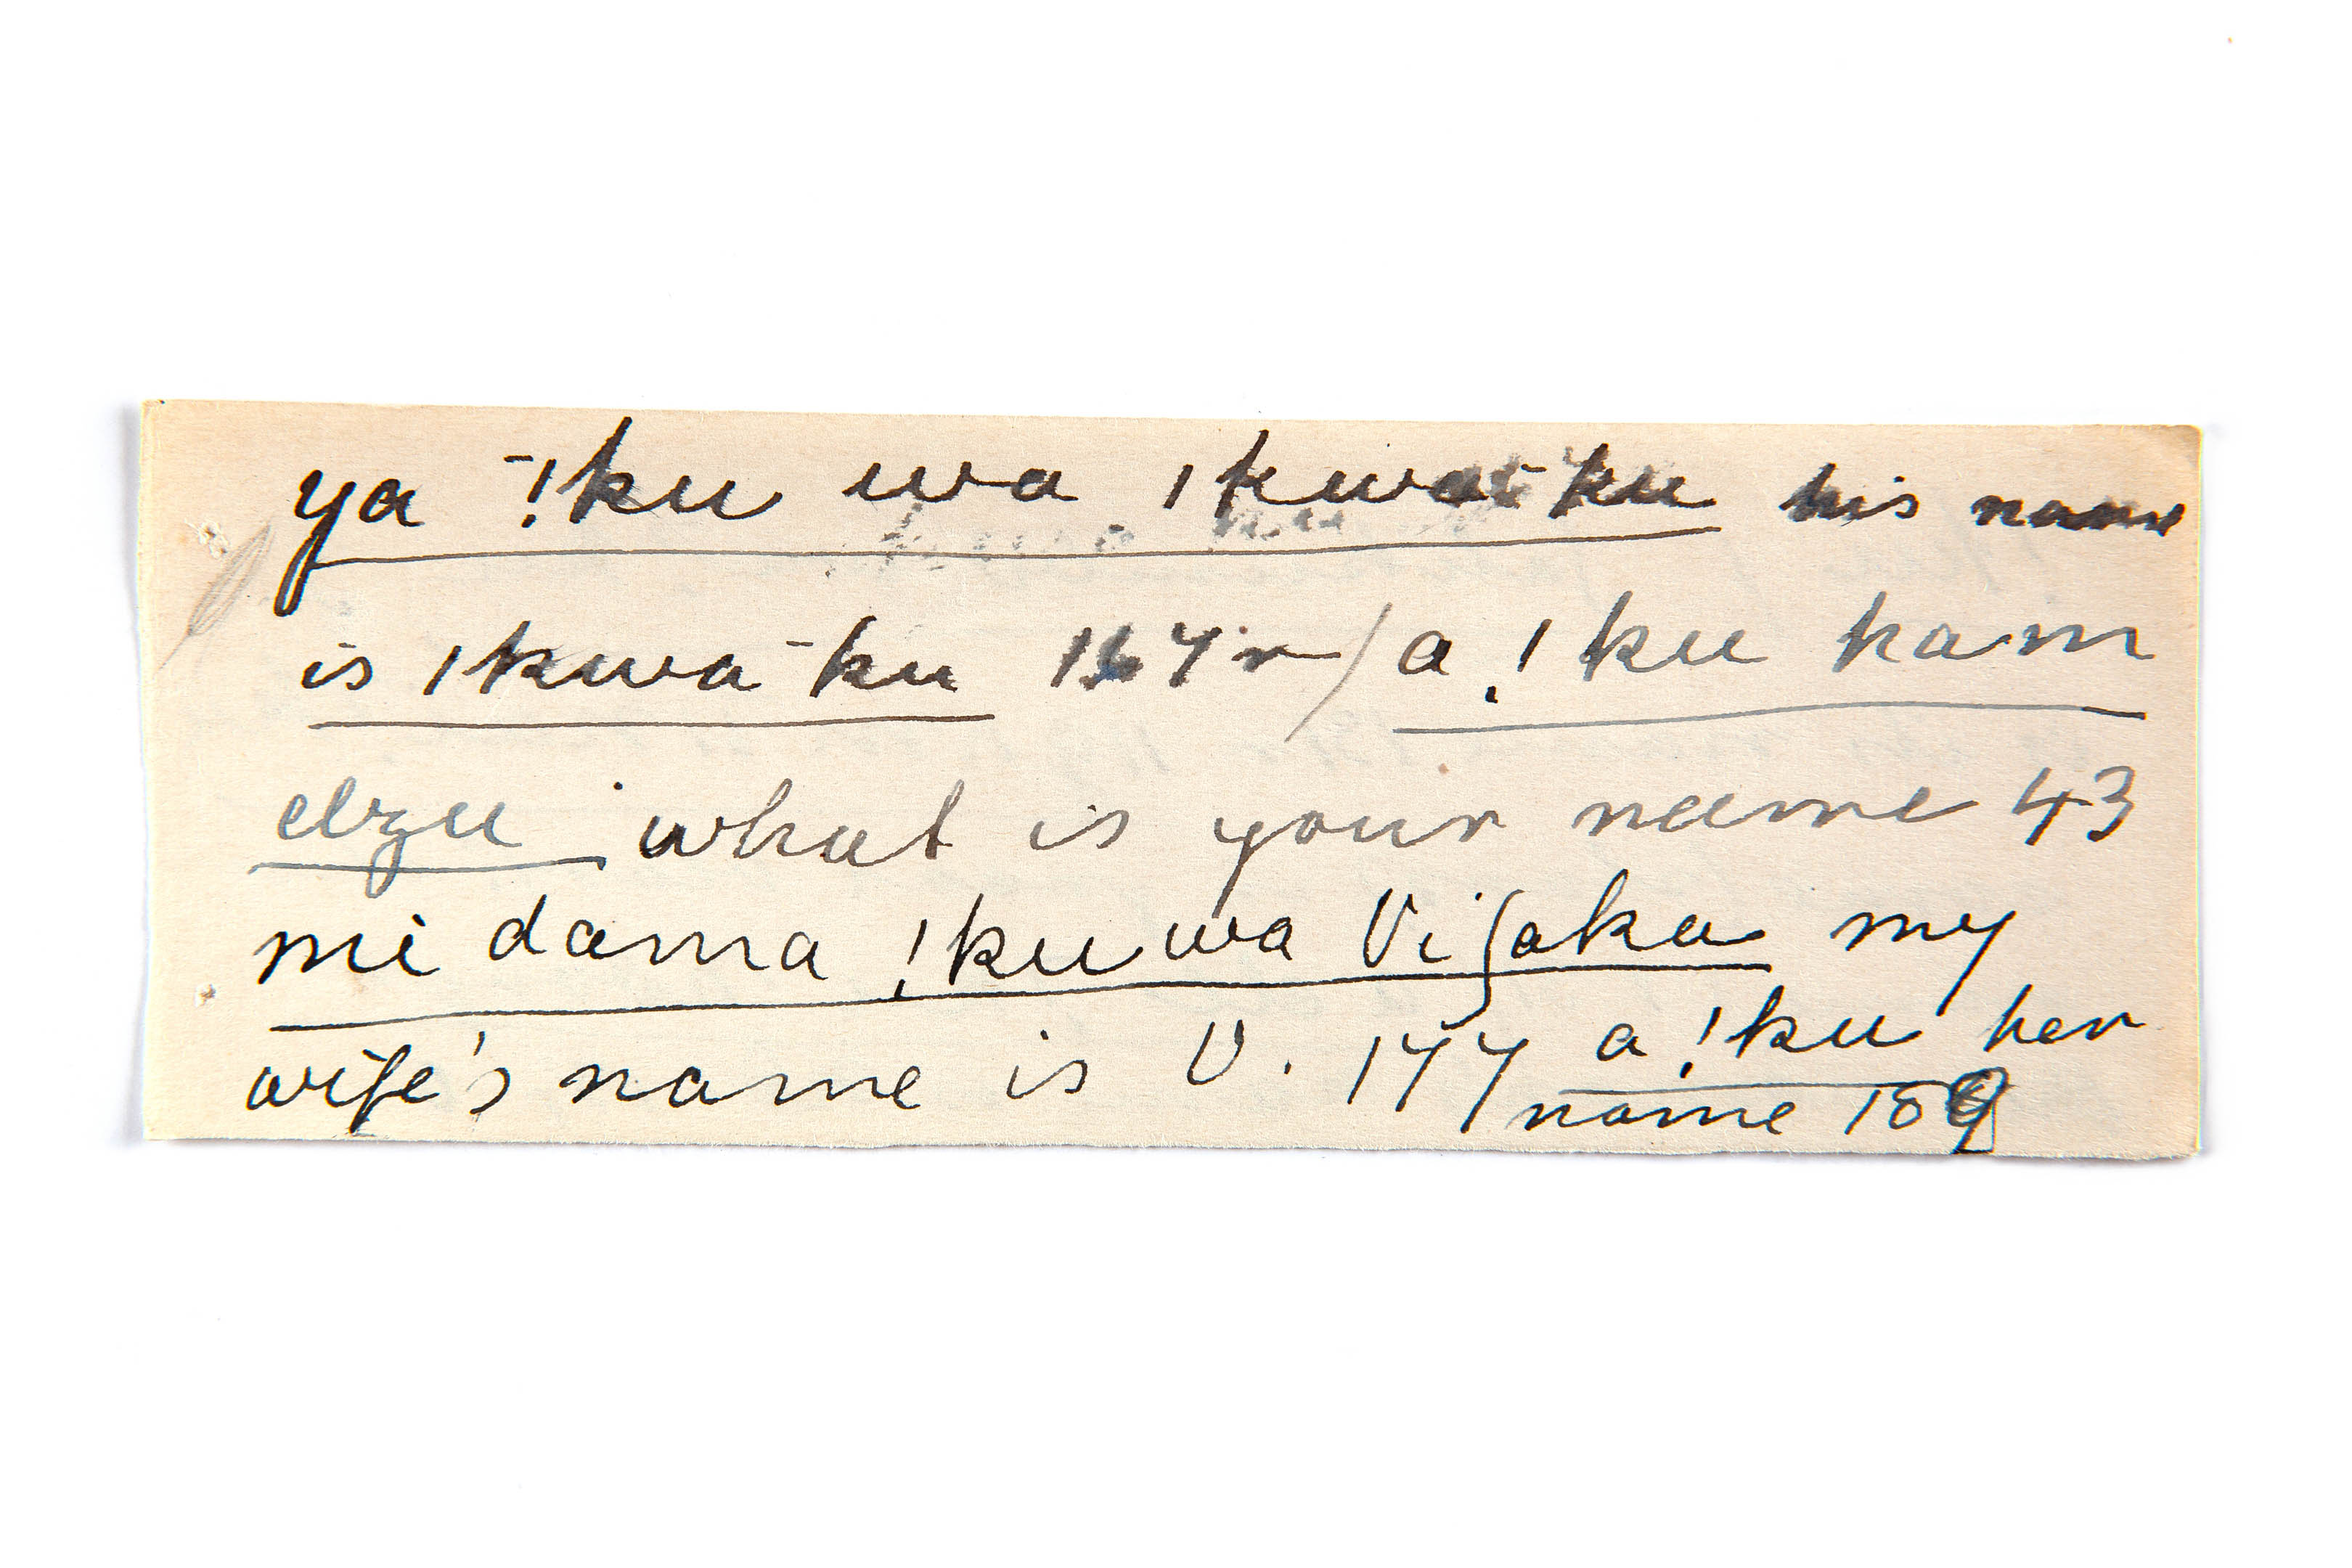 ya !̄ku wa ǀkwa-̄ku his name
is ǀkwa-̄ku 167r / a !ku ham
elzu what is your name 43
mi dama !ku wa Viʃaka my
wife's name is V. 177 a !ku her
name 189